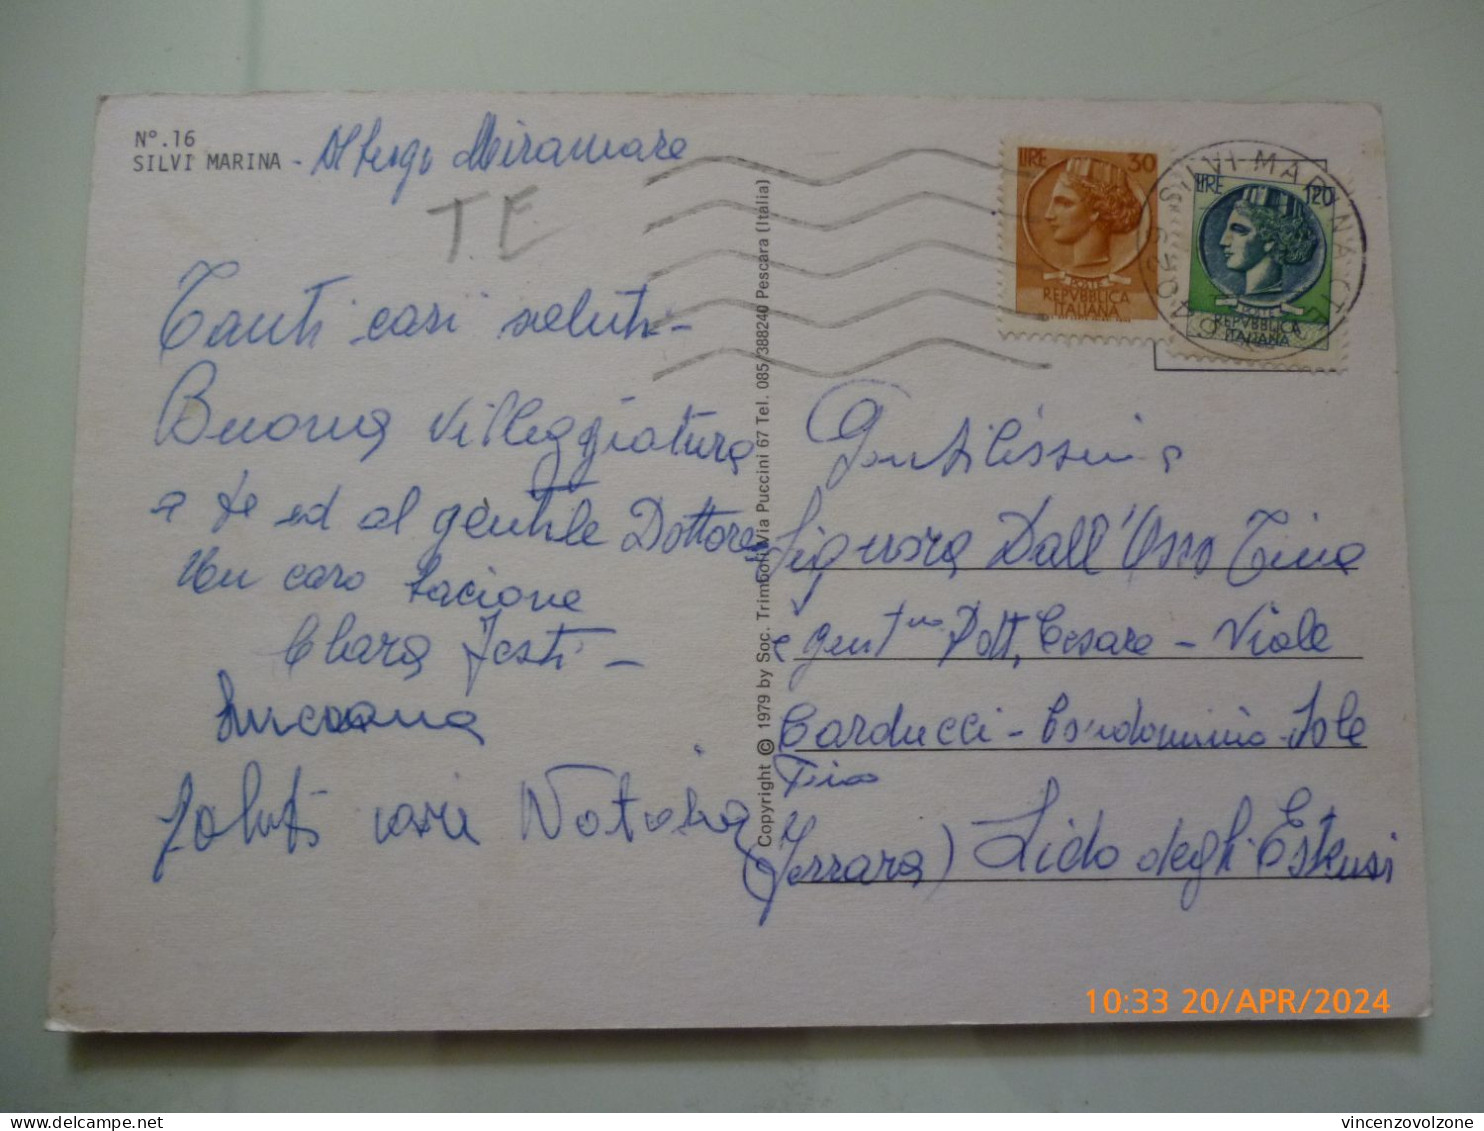 Nº.16
SILVI MARINA - Albergo Miramare
T.E
Tanti cari saluti -
Buona villeggiatura
a te ed al gentile Dottore
Un caro bacione
Clara Testi -
Luciana
Saluti cari Natalia
Copyright © 1979 by Soc. Trimboli Via Puccini 67 Tel. 085/388240 Pescara (Italia)
LIRE 30
POSTE
REPVBBLICA
ITALIANA
LIRE 120
POSTE
REPVBBLICA
ITALIANA
SILVI MARINA
Gentilissima
Signora Dall'Osso Tina
e gent.mo Dott. Cesare - Viale
Carducci - Condominio Sole
(Ferrara) Lido degli Estensi
10:33 20/APR/2024
vincenzovolzone